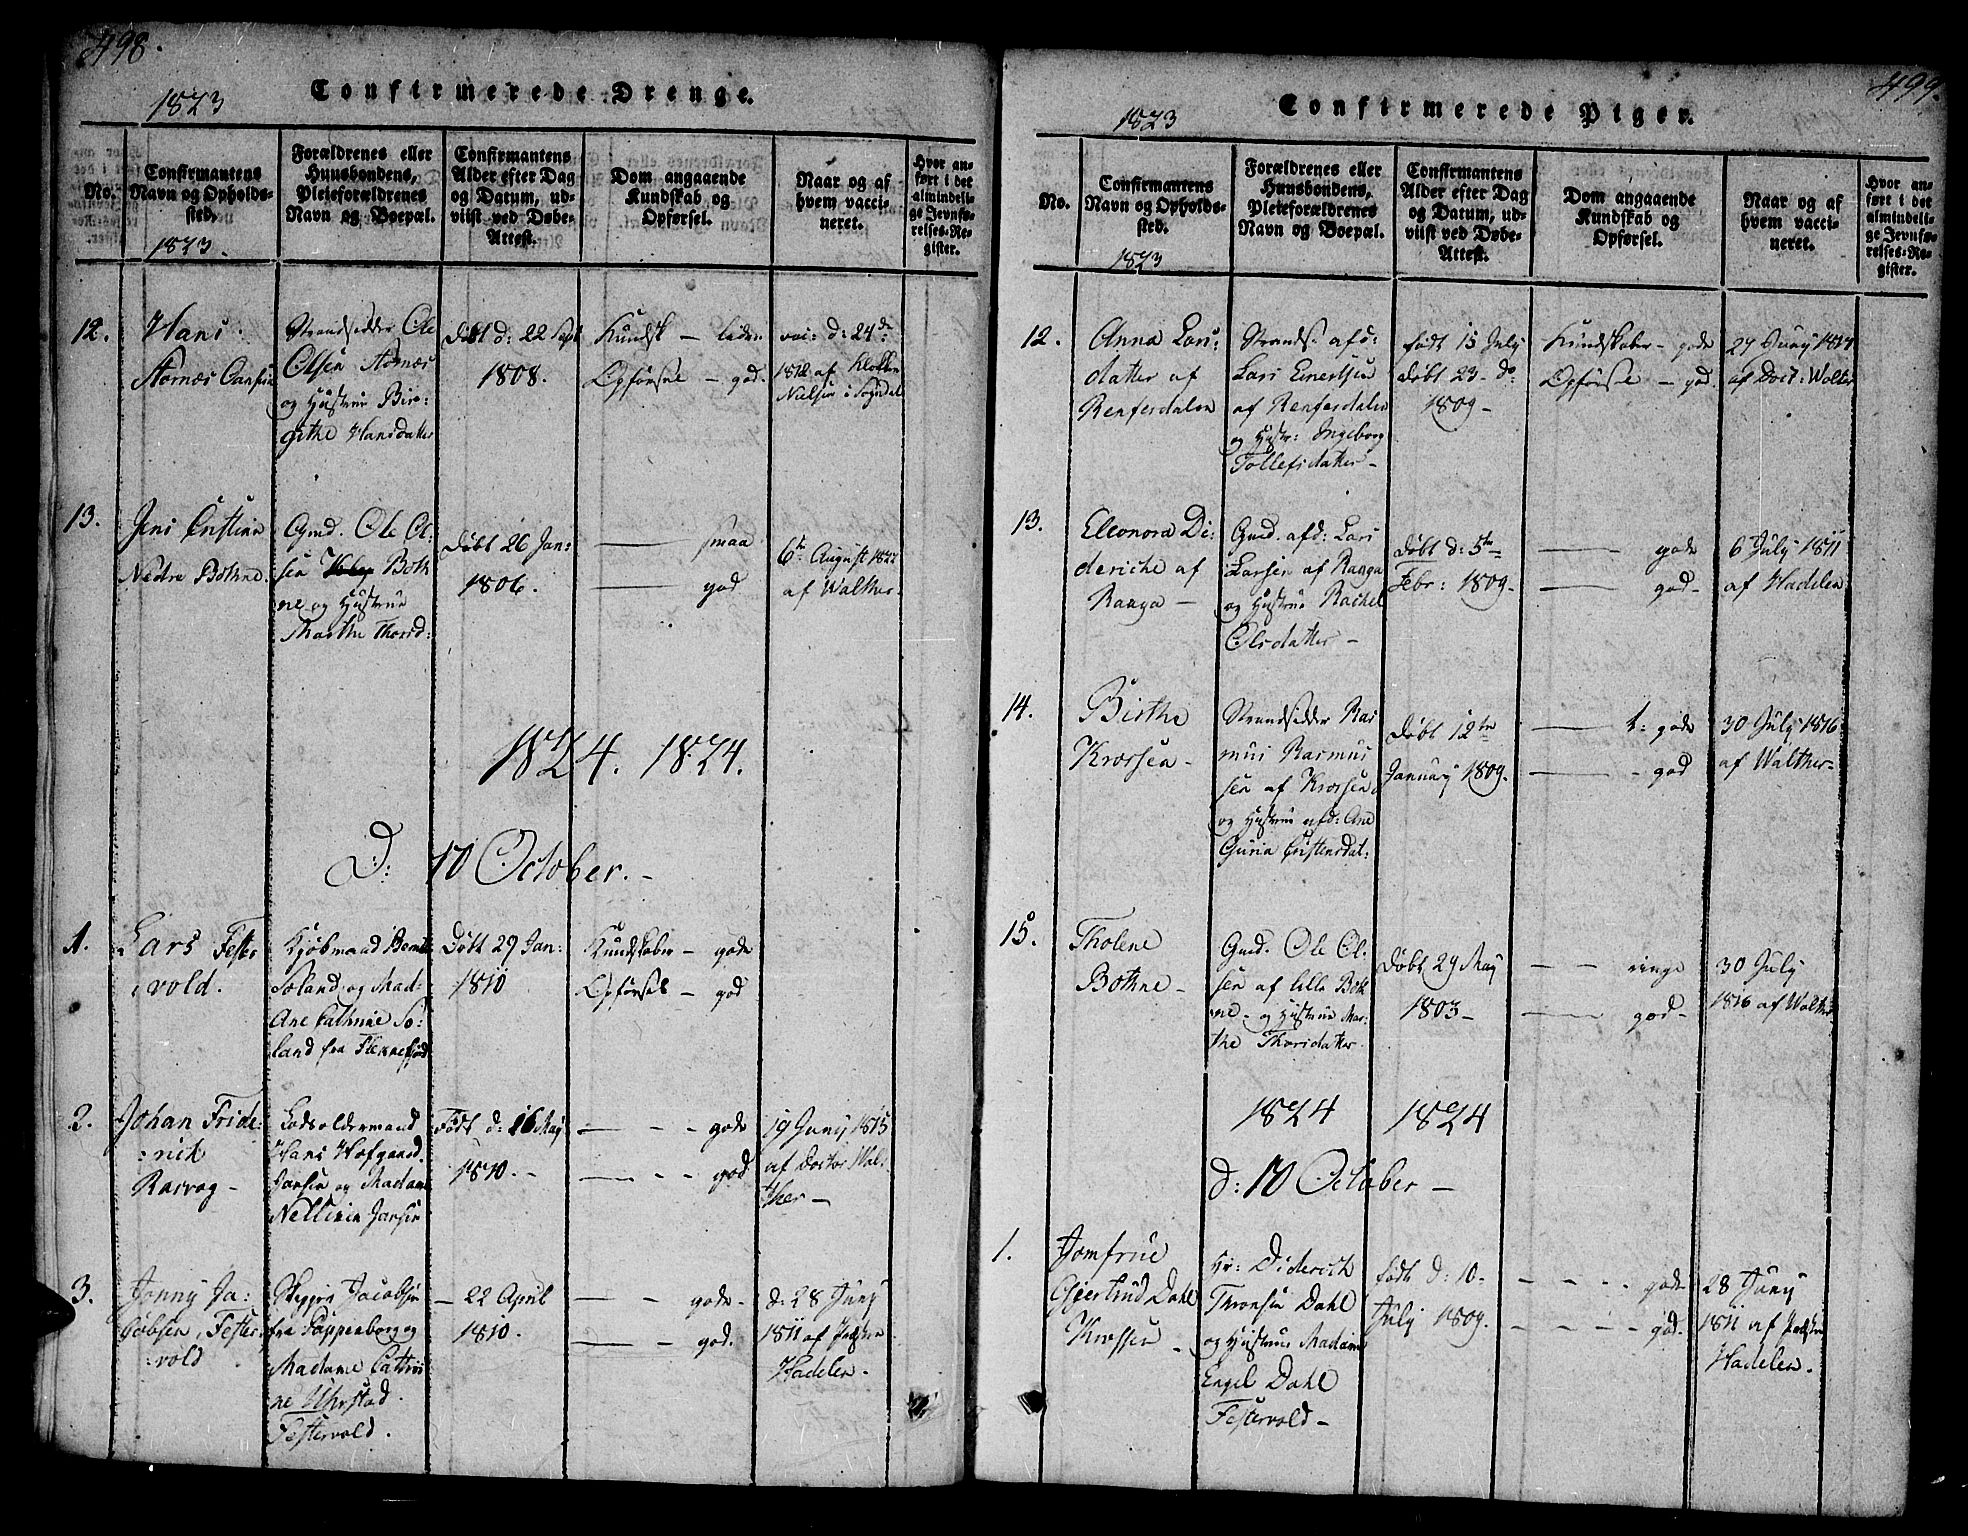 498.
Confirmerede Drenge.
1823
No.
Confirmantens
Navn og Opholds-
sted.
1823.
Forældrenes eller
Huusbondens,
Plejeforældrenes
Navn og Boepæl.
Confirmantens
Alder efter Dag
og Datum, ud-
viist ved Døbe-
Attest.
Dom angaaende
Kundskab og
Opførsel.
Naar og af
hvem vacci-
neret.
Hvor an-
ført i det
almindeli-
ge Jevnfø-
relses-Re-
gister.
12.
Hans
Stornæs
Strandsidder Ole
Olsen Stornæs
og Hustrue Bir-
githe Hansdatter
Døbt d: 22 Sept
1808.
Kundsk —
Opførsel — god.
vac: d: 24de
1812 af Klokker
Nielsen i Sogndal
13.
Jens
Nedre Bothne.
Gmd. Ole Ol-
sen Both
ne og Hustrue
Marthe Thorsd:
Døbt 26 Jan:
1806.
— smaa
— god
6te August 1822
af Walther.
1824. 1824.
D: 10 October. -
1.
Lars Fester
vold.
Kjøbmand Bernt
Soland og Mad-
Ane Cathrine So-
land fra Flekkefjord
Døbt 29 Jan:
1810
Kundskaber — gode
Opførsel — god
2.
Johan Fride-
:rich
Rasvog -
Lodsoldermand
Hans Hofgaard
Jansen og Madam
Jansen
Født d: 16 May
1810. -
— - - gode
— - - god
19 Juny 1815
af Doctor Wal-
ther —
3.
Jonny Ja-
cobsen, Fester
:vold
Skipper Jacobsen
fra Pappenborg og
Madame Cathri
ne Uhrstad.
Festervold.
— 22 April
1810.
— — gode -
— — god.
d: 28 Juny
1811 af
Hadelen.
499.
Confirmerede Piger.
1823
No.
Confirmantens
Navn og Opholds-
sted.
1823
Forældrenes eller
Huusbondens,
Plejeforældrenes
Navn og Boepæl.
Confirmantens
Alder efter Dag
og Datum, ud-
viist ved Døbe-
Attest.
Dom angaaende
Kundskab og
Opførsel.
Naar og af
hvem vacci-
neret.
Hvor an-
ført i det
almindeli-
ge Jevnfø-
relses-Re-
gister.
12.
Anna Lars:
datter af
Renferdalen
Strands. afd:
Lars Einertsen
af Renferdalen
og Hustr: Ingeborg
Tollefsdatter -
født 15 July
Døbt 23 - do
1809 -
Kundskaber - gode
Opførsel — god.
27 Juny
af Doct: Walter
13.
Eleonora Di-
deriche af
Raaga —
Gmd. afd: Lars
Larsen af Raaga
og Hustrue Rachel
Olsdatter -
Døbt d: 5te
Febr: 1809.
— gode
— god -
6 July 1811
af Hadelen
14.
Birthe
Krossen -
Strandsidder Ras
mus Rasmus
sen af Krossen
og Hustrue afd: Ane
Guria Cristensdat:
Døbt 12te
January 1809.
— t: gode
— - god
30 July 1816
af Walther -
15.
Tholene
Bothne -
Gmd. Ole Ol-
sen af lille Both
ne - og Hustrue Mar-
the Thorsdatter.
Døbt 29 May
1803 -
— — ringe
— god -
30 July
1816 af Walther
1824 1824
d: 10 October —
1.
Jomfrue
Gjertrud Dahl
Krossen -
Hr: Diderich
Thronsen Dahl
og Hustrue Madame
Engel Dahl
Festervold -
født d: 10 -
July 1809.
- - - - gode
- - - - god.
28 Juny
1811 af
Hadelen.